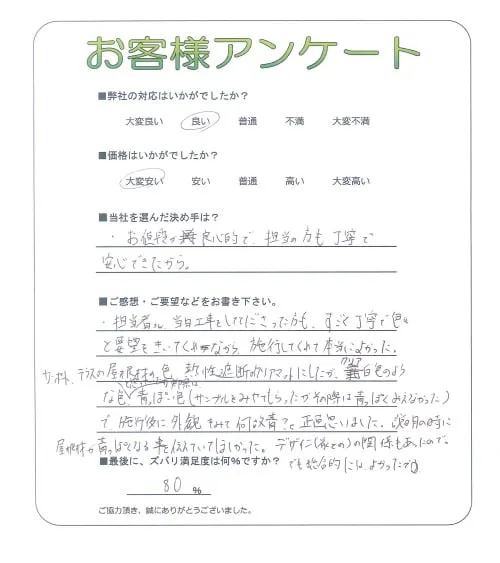 お客様アンケート
■弊社の対応はいかがでしたか？
大変良い 良い 普通 不満 大変不満
■価格はいかがでしたか？
大変安い 安い 普通 高い 大変高い
■当社を選んだ決め手は？
・お値段が良心的で、担当の方も丁寧で
安心できたから。
■ご感想・ご要望などをお書き下さい。
・担当者さん、当日工事をしてくださった方も、すごく丁寧で色々
と要望をきいてくれながら、施行してくれて本当によかった。
テラスの屋根材の色、熱性遮断のクリアマットにしたが、白色のよう
な色、青っぽい色(サンプルをみせてもらったがその時は青っぽくみえなかった)
で施行後に外観をみて何故青？と正直思いました。説明の時に
屋根材が青っぽくなる事を伝えていてほしかった。デザイン(家との)の関係もあったので。
でも総合的にはよかったです
■最後に、ズバリ満足度は何%ですか？
80 %
ご協力頂き、誠にありがとうございました。